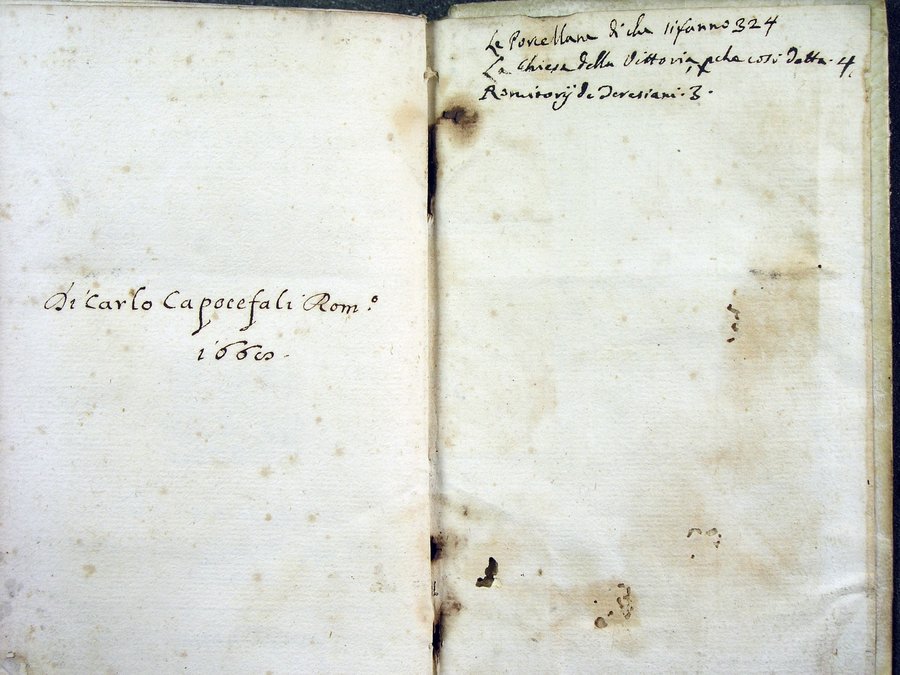 Di Carlo Capocefali Rom.º
1660.
Le Porcellane di che si fanno 324
La Chiesa della Vittoria, pche cosi detta. 4.
Romitorij de Teresiani. 3.